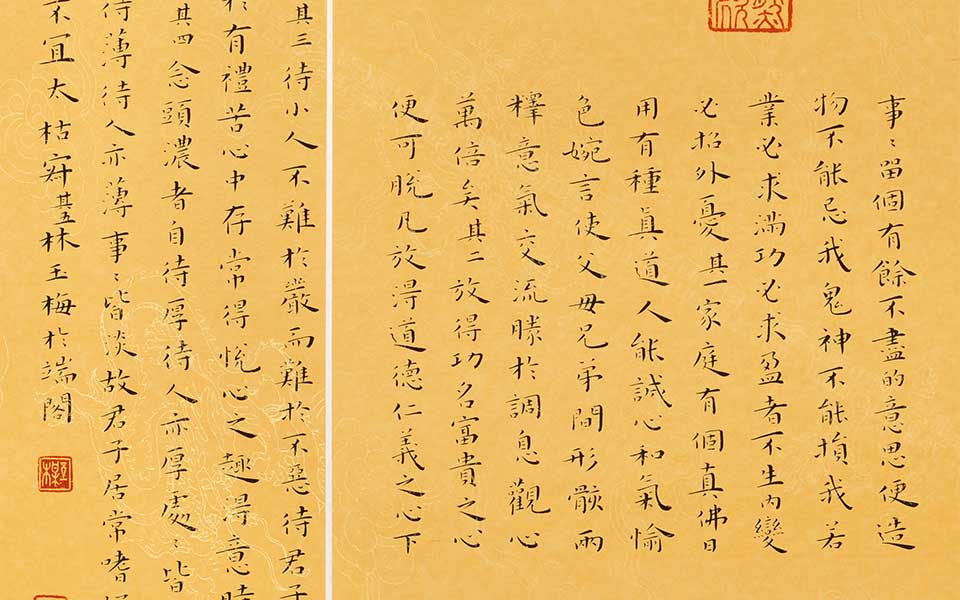 事〻留個有餘不盡的意思便造
物不能忌我鬼神不能損我若
業必求滿功必求盈者不生內變
必招外憂其一家庭有個真佛日
用有種真道人能誠心和氣愉
色婉言使父母兄弟間形骸兩
釋意氣交流勝於調息觀心
萬倍矣其二放得功名富貴之心
便可脫凡放得道德仁義之心下
其三待小人不難於嚴而難於不惡待君子
於有禮苦心中存常得悅心之趣得意時
其四念頭濃者自待厚待人亦厚處〻皆
待薄待人亦薄事〻皆淡故君子居常嗜
不宜太枯寂其五林玉梅於端閣